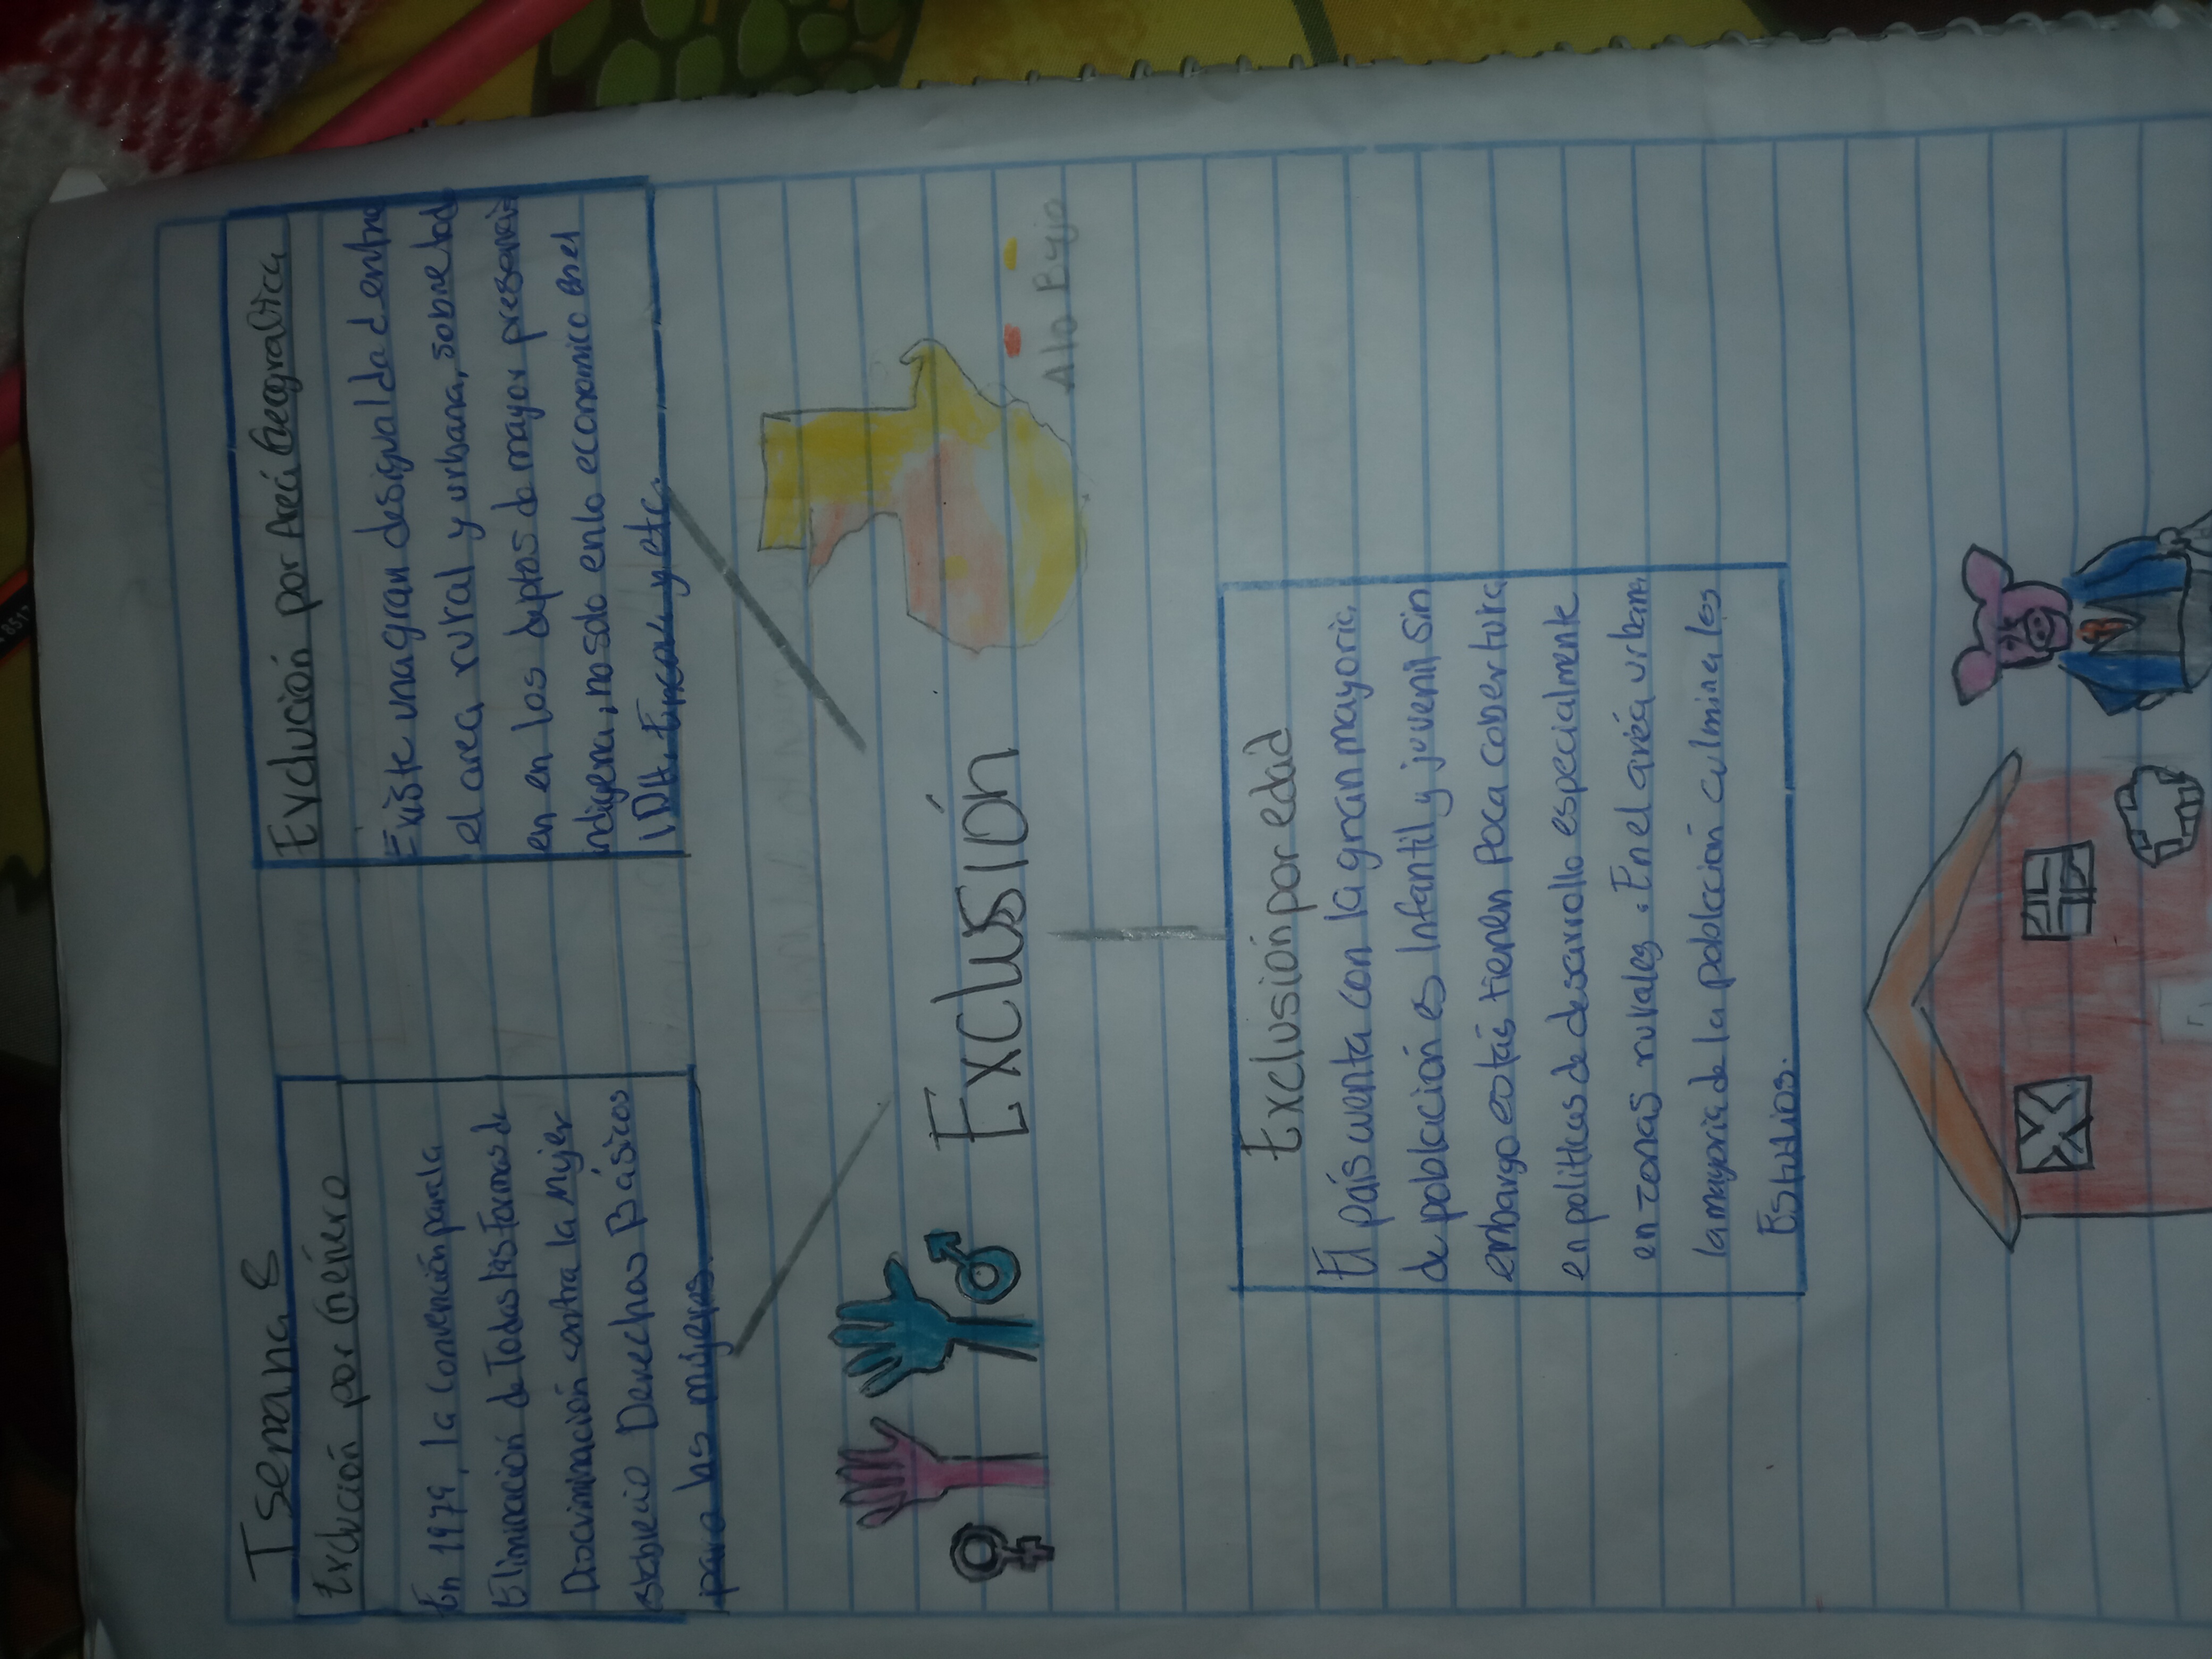 Tsemana 8
Exclución por Género
En 1979, la Convención para la
Eliminación de Todas las Formas de
Discriminación contra la Mujer
establecio Derechos Básicos
para las mujeres.
Exclución por Areá Geografica
Existe una gran desigualdad entre
el area rural y urbana, sobre tod
en en los deptos de mayor presencia
indigena, no solo en lo economico en el
y etc.
Exclusión
Alo Bajo
Exclusión por edad
El país cuenta con la gran mayoria
de población es Infantil y juvenil sin
embargo estás tienen Poca cobertura
en politicas de desarrollo especialmente
en zonas rurales. En el aréa urbana
la mayoria de la población culmina los
Estudios.